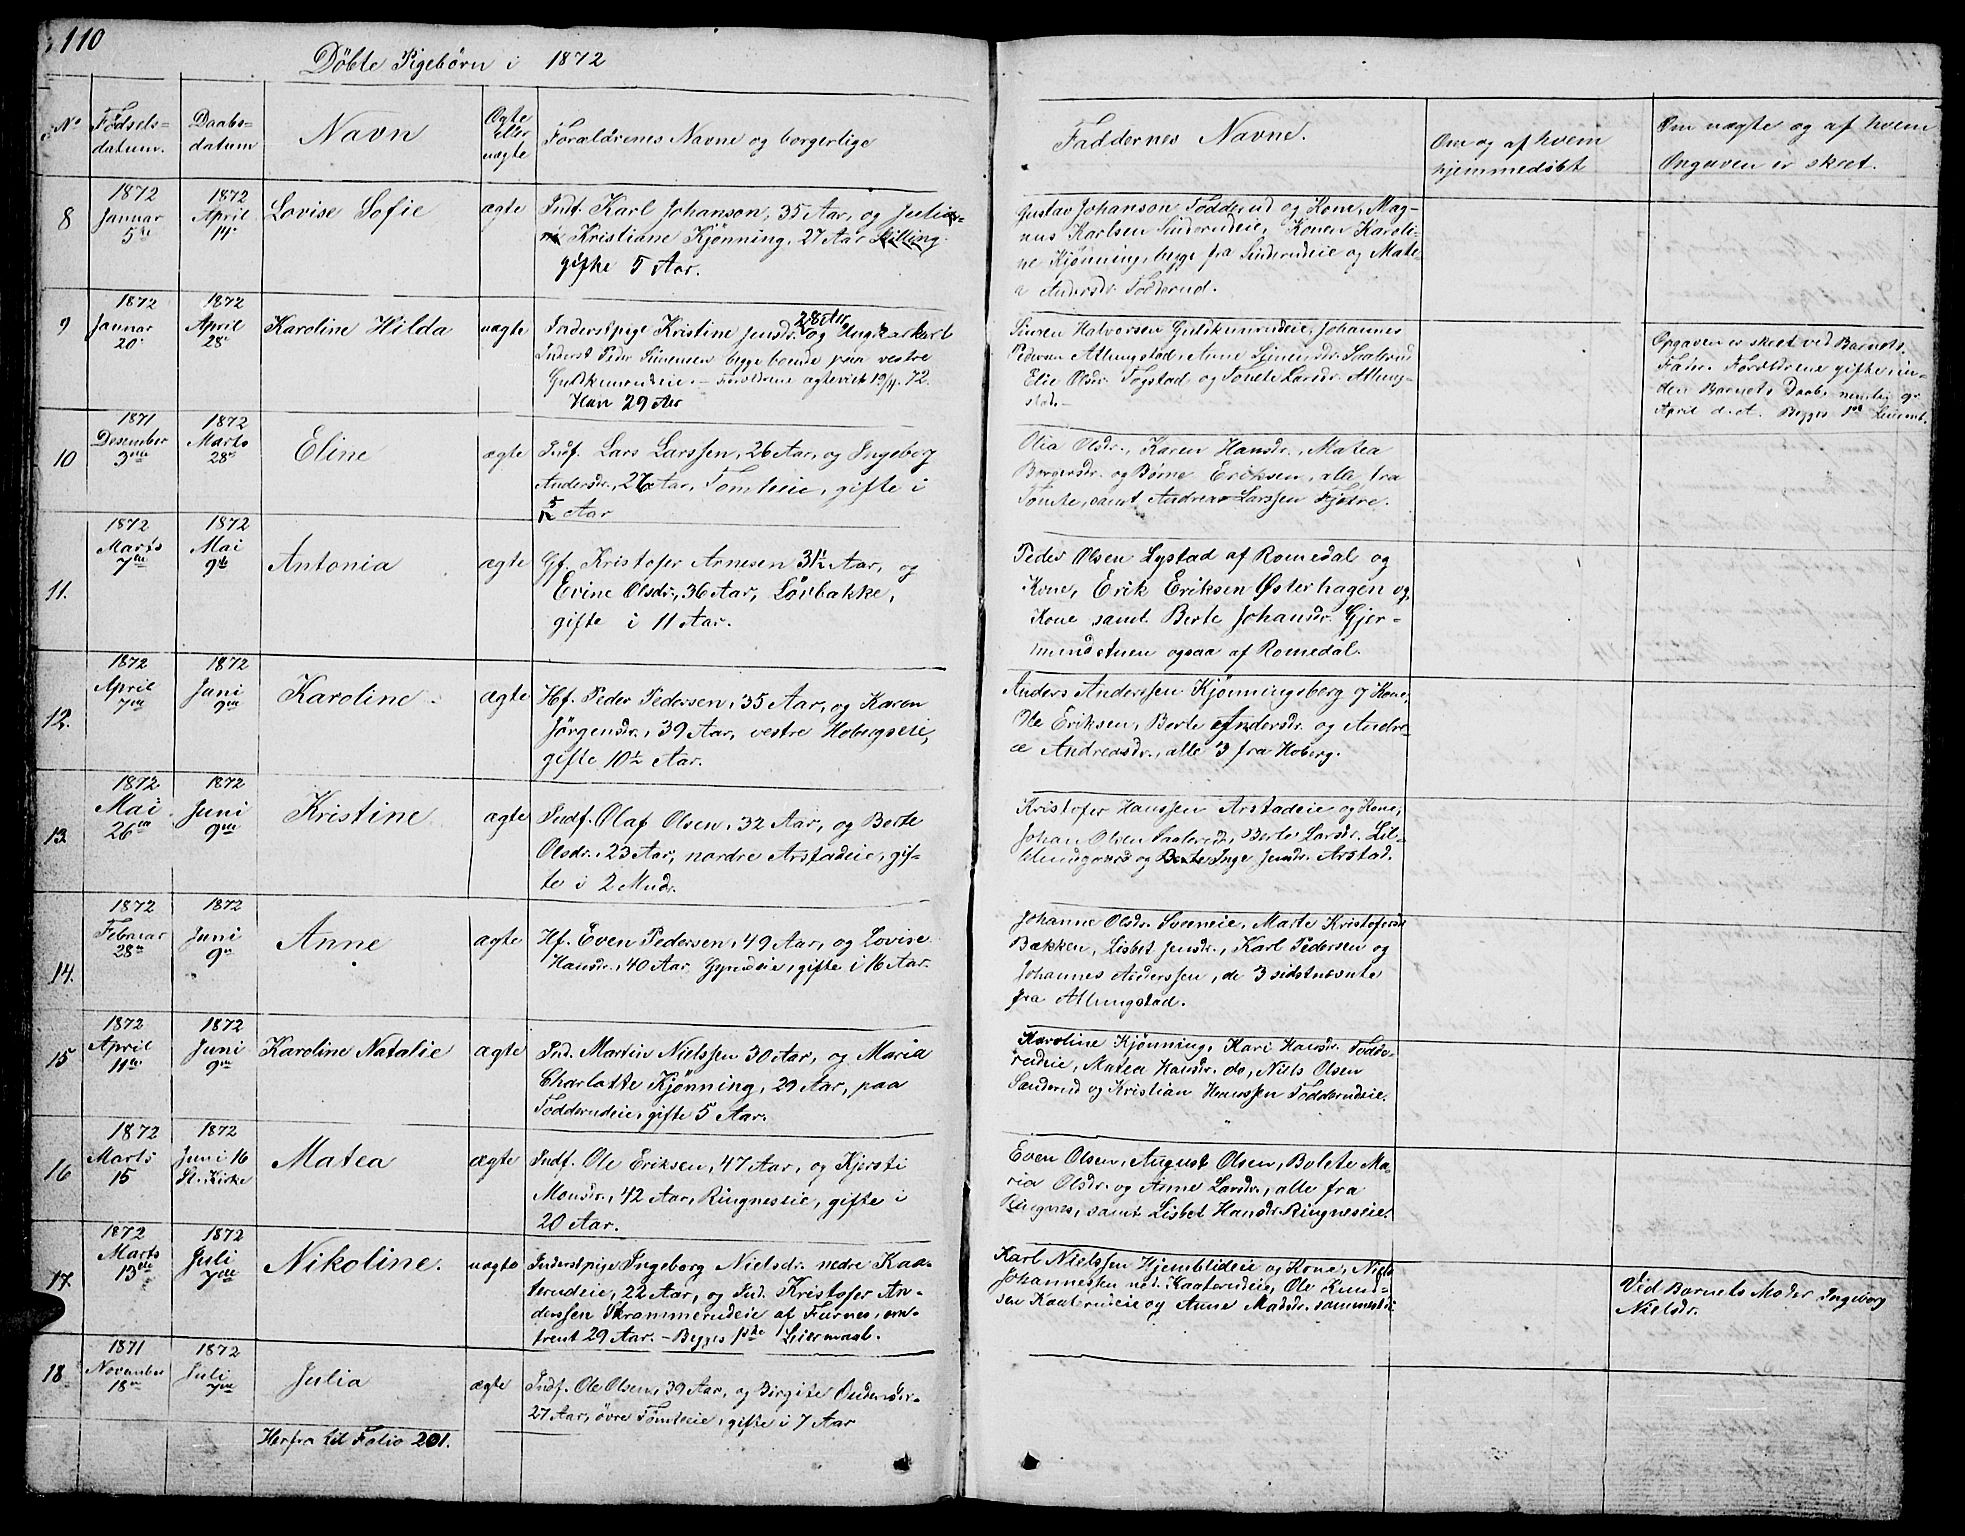 110
Döbte Pigebörn i 1872
No
Födsels-
datum.
Daabs-
datum
Navn
Ægte
eller
uægte
Forældrenes Navne og borgerlige
Faddernes Navne.
Om og af hvem
hjemmedöbt
Om uægte og af hvem
Opgaven er skeet.
8
1872
Januar
5te
1872
April
14
Lovise Sofie
ægte
Indf. Karl Johanson, 35 Aar, og Juli-
Kristiane Kjönning, 27 Aar
gifte 5 Aar.
Gustav Johanson Fodderud og Kone, Mag-
nus Karlsen Sinderudeie, Konen Karoli-
ne Kjönning, begge fra Sinderudeie og Mate-
a Andersdr. Fodderud.
9
1872
Januar
20
1872
April
28
Karoline Hilda
uægte
28 Aar
Inderstpige Kristine Jensdr. og Ungkarkarl
Inderst Peder Simensen begge boende paa vestre
Guldkunrudeie. - Forældrene ægteviet 19/4 72.
Han 29 Aar
Simen Halvorsen Guldkunrudeie, Johannes
Pedersen Atlungstad, Anne Simensdr. Saalerud
Elie Olsdr. Togstad og Tonete Larsdr. Atlung-
stad.
Opgaven er skeet ved Barnets
Fader. Forældrene gifte in-
den Barnets Daab, nemlig 9.
April d. A. Begges 1ste Leierm.
10
1871
Desember
3die
1872
Marts
28
Eline
ægte
Indf. Lars Larssen, 26 Aar, og Ingeborg
Andersdr., 26 Aar, Tomteeie, gifte i
5/12 Aar
Olia Olsdr., Karen Hansdr., Matea
Borgersdr. og Börne Eriksen, alle fra
Tomte, samt Andreas Larssen Fjetre.
11.
1872
Marts
7de
1872
Mai
9de
Antonia
ægte
Gf. Kristofer Arnesen 31½ Aar, og
Evine Olsdr., 36 Aar, Lörbakke,
gifte i 11 Aar.
Peder Olsen Lystad af Romedal og
Kone, Erik Eriksen Østerhagen og
Kone samt Berte Johansdr. Gjer-
mundstuen ogsaa af Romedal.
12.
1872
April
7de
1872
Juni
9de
Karoline
ægte
Hf. Peder Pedersen, 35 Aar, og Karen
Jörgensdr., 39 Aar, vestre Hobergseie,
gifte 10½ Aar.
Anders Anderssen Kjönningsberg og Kone,
Ole Eriksen, Berte Andersdr. og Andre-
æ Andreasdr., alle 3 fra Hoberg.
13
1872
Mai
26de
1872
Juni
9de
Kristine
ægte
Indf. Olaf Olsen, 32 Aar, og Berte
Olsdr., 23 Aar, nordre Arstadeie, gif-
te i 2 Mndr.
Kristofer Hanssen Arstadeie og Kone,
Johan Olsen Saalerud, Berte Larsdr. Lil-
og Inge Jensdr. Arstad.
14.
1872
Februar
28
1872
Juni
9
Anne
ægte
Hf. Even Pedersen, 49 Aar, og Lovise
Hansdr., 40 Aar, gifte i 16 Aar.
Johanne Olsdr. Sveneie, Marte Kristofersdr.
Bækken, Lisbet Jensdr., Karl Pedersen og
Johannes Anderssen, de 3 sidstnævnte
fra Atlungstad.
15
1872
April
11te
1872
Juni
9de
Karoline Natalie
ægte
Ind. Martin Nielssen 30 Aar, og Maria
Charlotte Kjönning, 29 Aar, paa
Fodderudeie, gifte 5 Aar.
Karoline Kjönning, Kari Hansdr. Fodde-
rudeie, Matea Hansdr. do, Niels Olsen
Sanderud og Kristian Hanssen Fodderudeie.
16
1872
Marts
15
1872
Juni 16
St. Kirke
Matea
ægte
Indf. Ole Eriksen, 47 Aar, og Kjersti
Monsdr., 42 Aar, Ringneseie, gifte i
20 Aar.
Even Olsen, August Olsen, Bolete Ma-
ria Olsdr. og Anne Larsdr., alle fra
Ringnes, samt Lisbet Hansdr. Ringneseie.
17.
1872
Marts
13de
1872
Juli
7de
Nikoline.
uægte
Inderstpige Ingeborg Nielsdr. nedre Kaa-
terudeie, 22 Aar, og Ind. Kristofer An-
derssen Skrammerudeie af Furnes, om-
trent 29 Aar. - Begges 1ste Leiermaal.
Karl Nielssen Hjemblideie og Kone, Niels
Johannessen ned. Kaaterudeie, Ole Knud-
sen Kaaterudeie og Anne Madsdr. sammesteds.
Ved Barnets Moder Ingeborg
Nielsdr.
18
1871
November
18
1872
Juli
7de
Julia
ægte
Indf. Ole Olsen, 39 Aar, og Birgite Ondersdr.
27 Aar, övre Tomteeie, gifte i 7 Aar
Herfra til Folio 201.